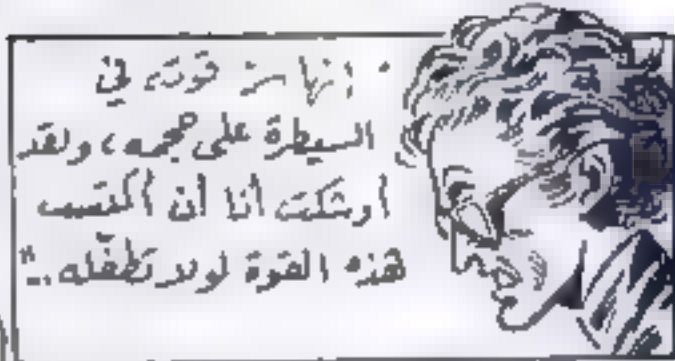 " إنها سر قوته في
السيطرة على حجمه، ولقد
أوشكت أنا أن أكتسب
هذه القوة لولا تطفّله .."